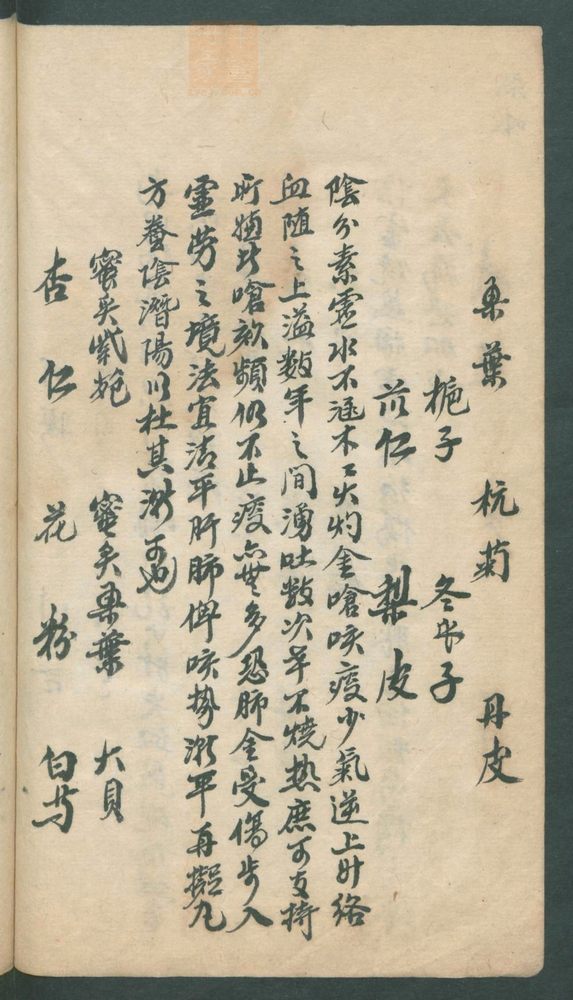 桑葉　杭菊　丹皮
梔子　冬瓜子
苡仁　梨皮
陰分素虛水不涵木木火灼金嗆咳痰少氣逆上升絡
血随之上溢数年之間湧吐数次幸不燒热庶可支持
所嫌者嗆欬頻仍不止痰亦甚多恐肺金受傷步入
虛劳之境法宜清平肝肺俾咳势漸平再擬丸
方養陰潛陽以杜其漸可也
蜜炙紫菀　蜜炙桑葉　大貝
杏仁　花粉　白芍